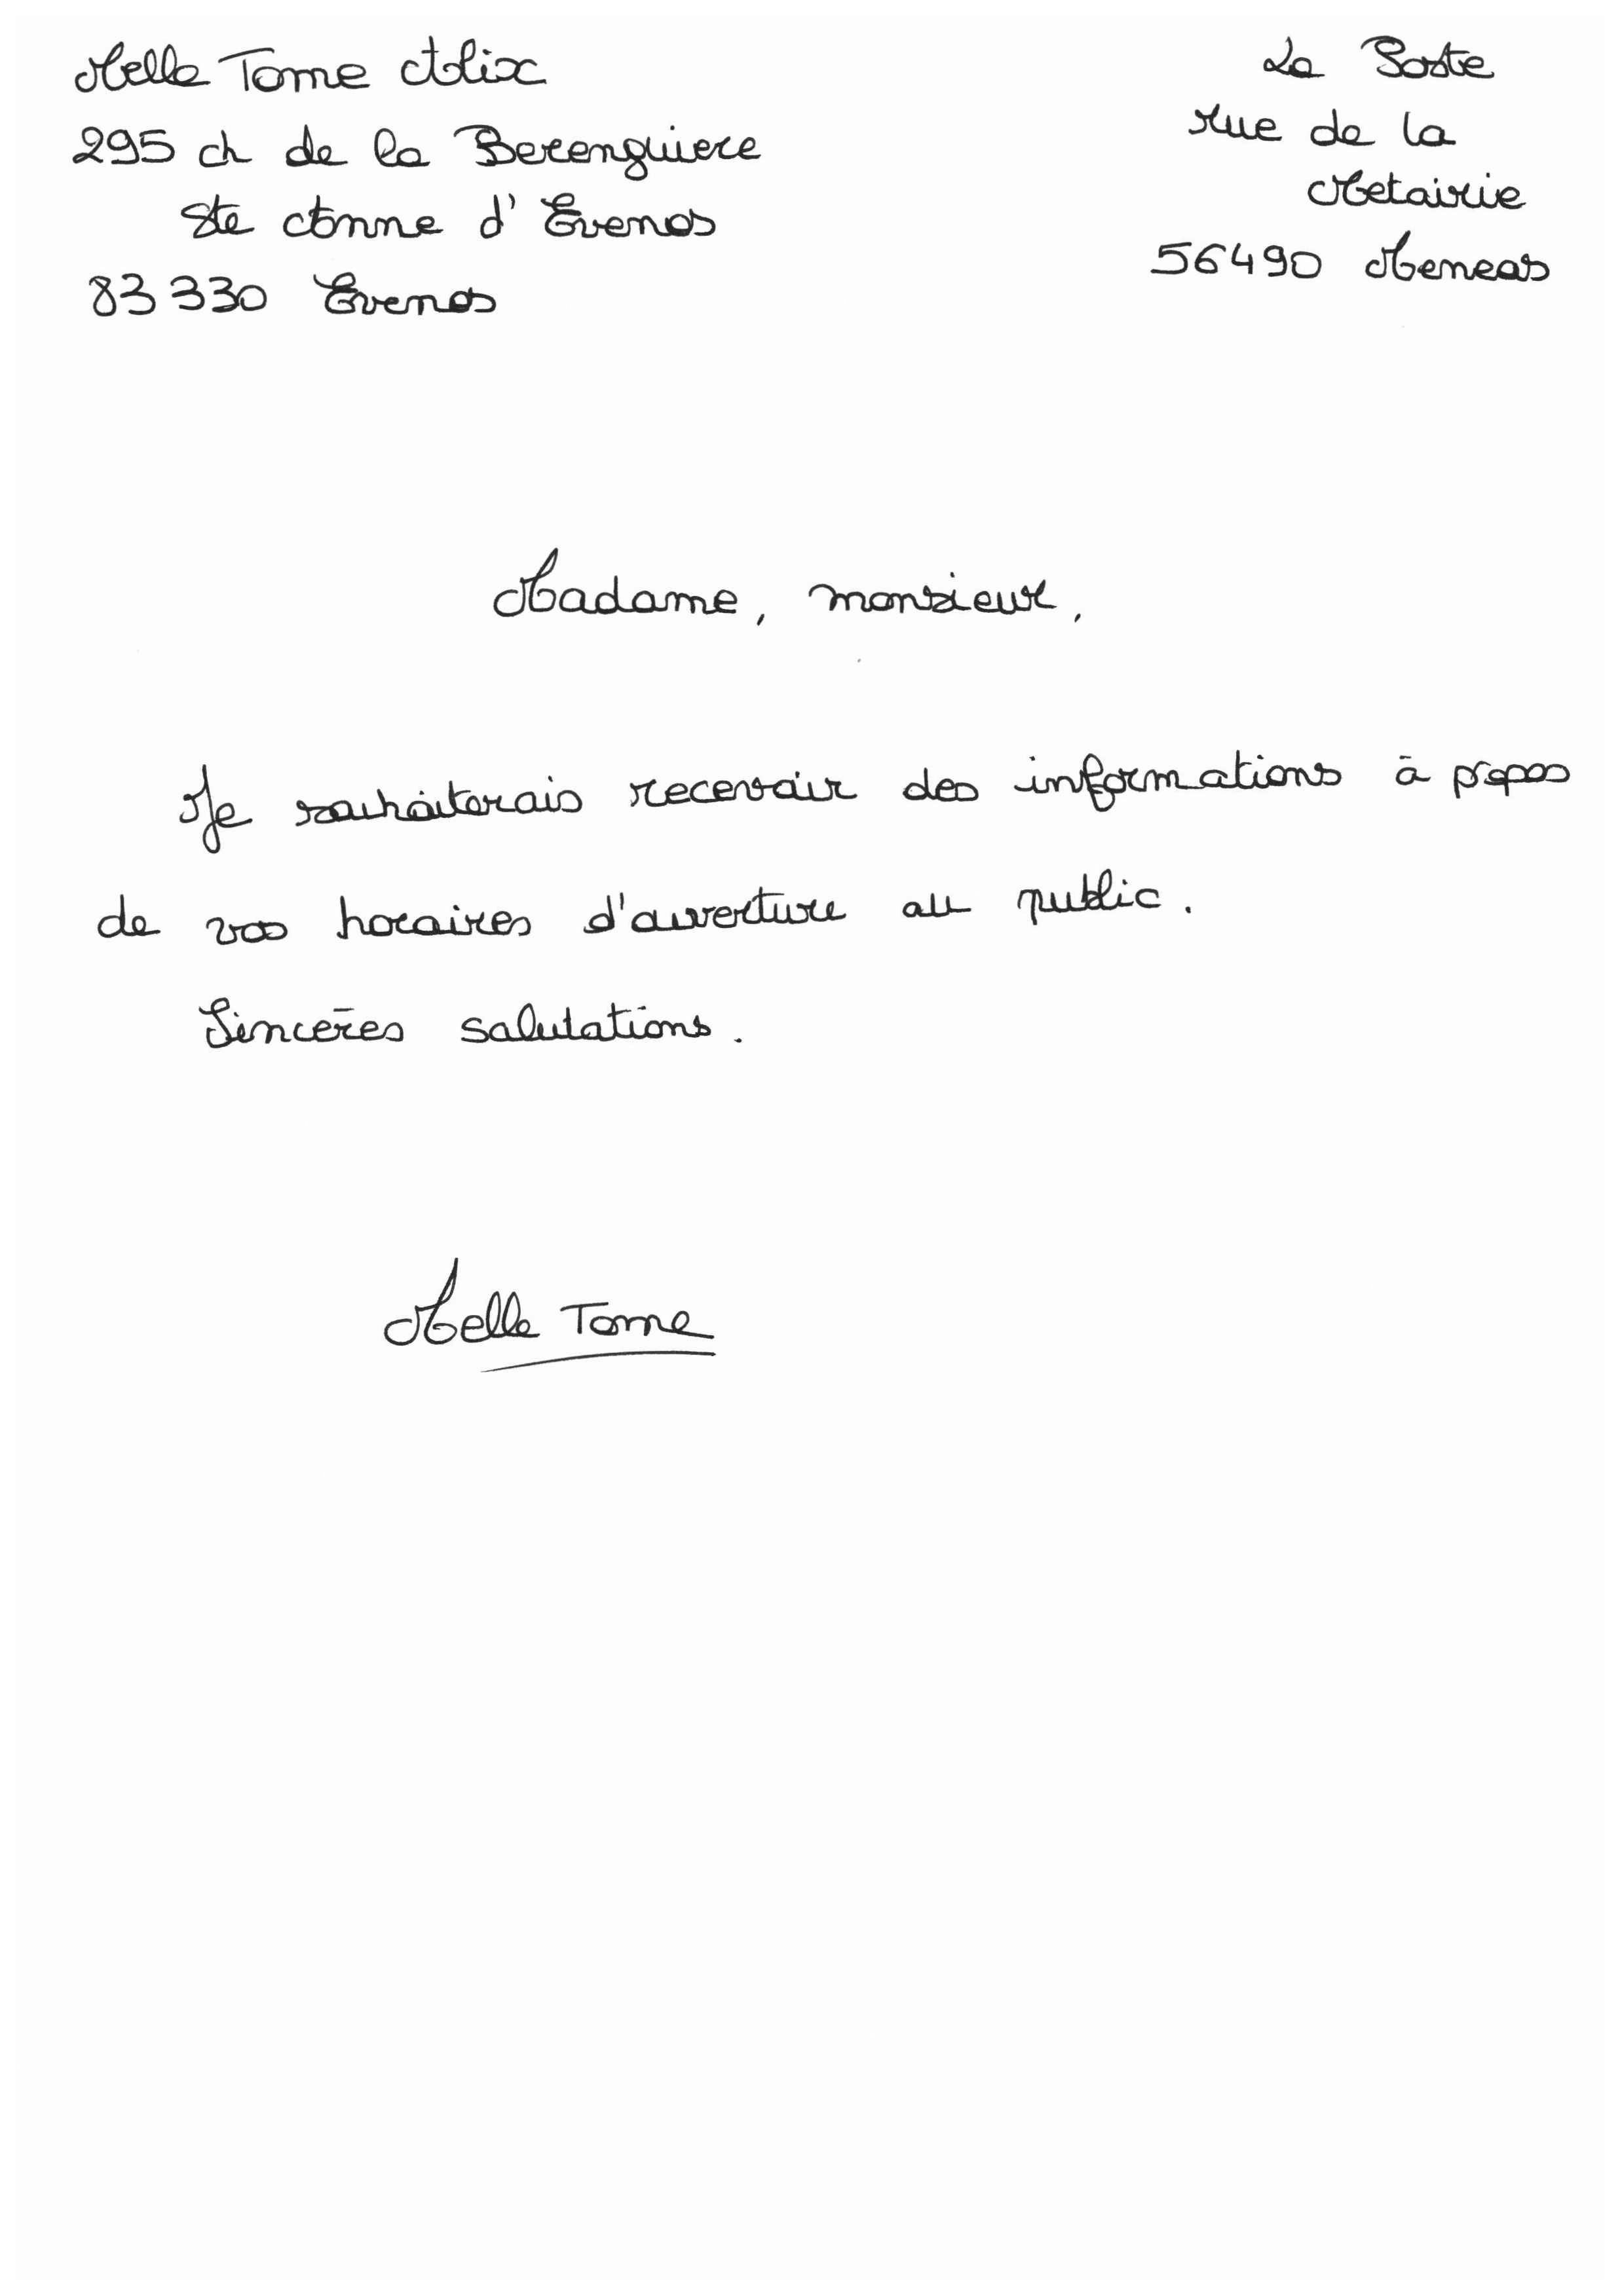 Melle Tome Alix
295 ch de la Berenguiere
Ste Anne d'Evenos
83330 Evenos
La Poste
rue de la
Metairie
56490 Meneas
Madame, monsieur,
Je souhaiterais recevoir des informations à propos
de vos horaires d'ouverture au public.
Sincères salutations.
Melle Tome